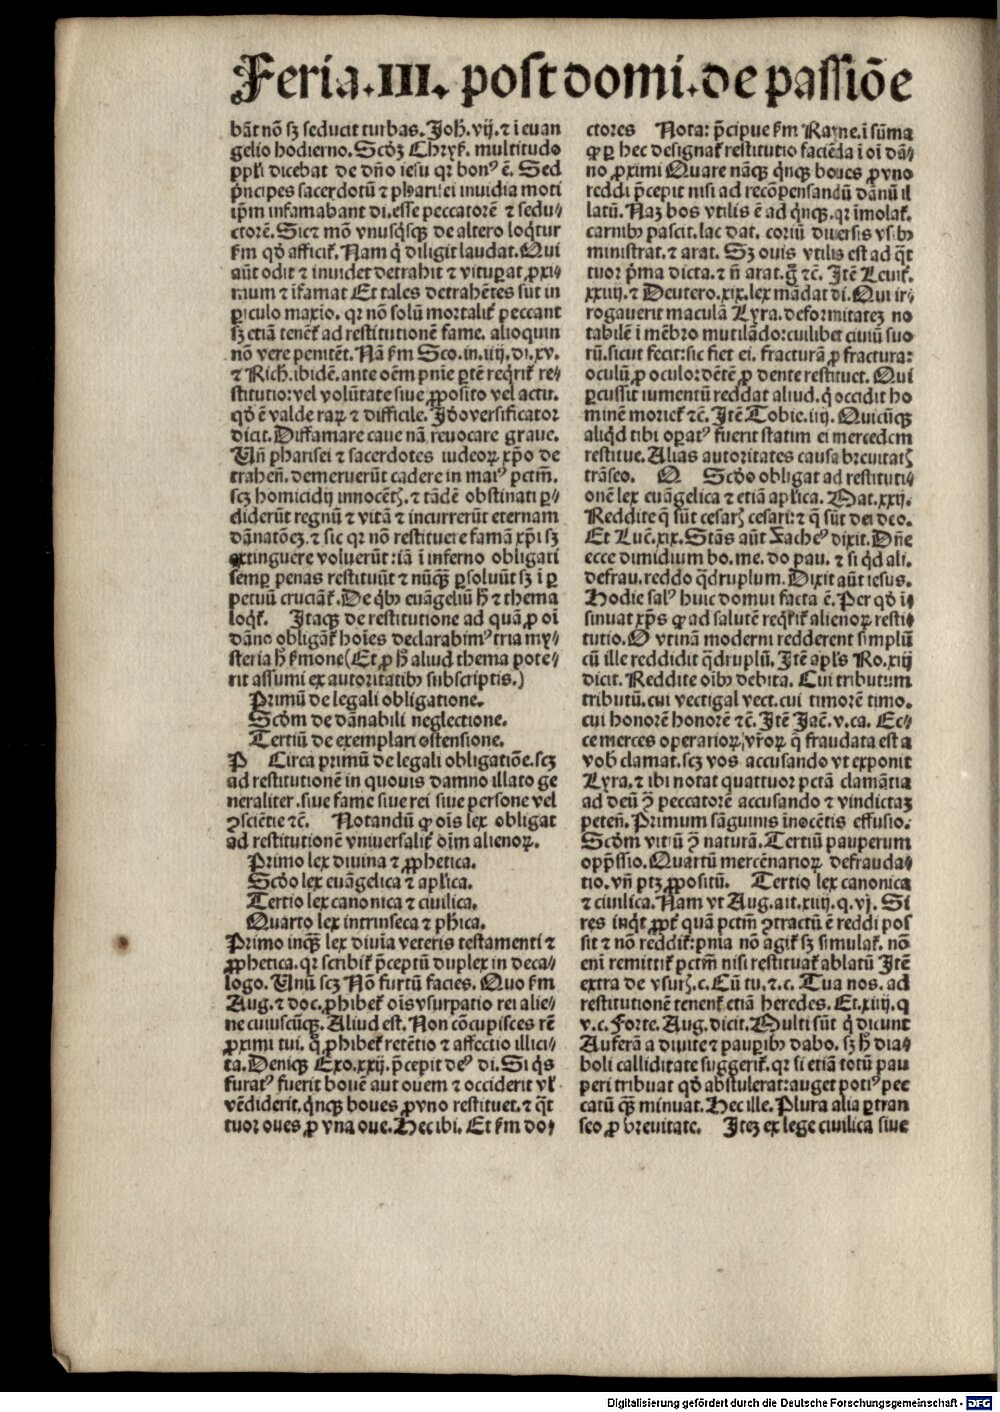 Feria.III. post domi.de passiōe
bāt nō sꝫ seducit turbas. Joh̄. vij. ⁊ ī euan
gelio hodierno. Scdꝫ Chryſ. multitudo
ppl̄i dicebat de dn̄o iesu qr bonꝰ ē. Sed
p̄ncipes sacerdotū ⁊ pharisei inuidia moti
ip̄m infamabant di. esse peccatorē ⁊ sedu⸗
ctorē. Sic̄ mō vnusq̄sqꝫ de altero loq̄tur
ẜm qd̄ afficit̄. Nam q̄ diligit laudat. Qui
aūt odit ⁊ inuidet detrahit ⁊ vituꝑat ꝓxi⸗
mum ⁊ īfamat Et tales detrahētes sūt in
ꝑiculo maxīo. qr nō solū mortalit̄ peccant
sꝫ etiā tenēt̄ ad restitutionē fame. alioquin
nō vere penitēt. Nā ẜm Sco. in. iiij. di. xv.
⁊ Rich̄. ibidē. ante oēm pn̄ie ꝑtē req̄rit̄ re⸗
stitutio: vel volūtate siue ꝓposito vel actu.
qd̄ ē valde raꝝ ⁊ difficile. Id̄o versificator
dicit. Diffamare caue nā reuocare graue.
Un̄ pharisei ⁊ sacerdotes iudeoꝝ xp̄o de
trahen̄. demeruerūt cadere in maiꝰ pctm̄.
scꝫ homicidij innocētꝭ. ⁊ tādē obstinati ꝑ⸗
diderūt regnū ⁊ vitā ⁊ incurrerūt eternam
dānatōeꝫ. ⁊ sic qr nō restituere famā xp̄i sꝫ
extinguere voluerūt: iā ī inferno obligati
semꝑ penas restituūt ⁊ nūqꝫ ꝑsoluūt sꝫ ī ꝑ
petuū cruciāt̄. De qͥbꝰ euāgeliū h̄ ⁊ thema
loqt̄. Itaqꝫ de restitutione ad quā ꝓ oī
dāno obligāt̄ hoīes declarabimꝰ tria my⸗
steria h̄ ẜmone (Et ꝓ h̄ aliud thema pote⸗
rit assumi ex autoritatibꝰ subscriptis.)
Primū de legali obligatione.
Scd̄m de dānabili neglectione.
Tertiū de exemplari ostensione.
P Circa primū de legali obligatiōe. scꝫ
ad restitutionē in quouis damno illato ge
neraliter. siue fame siue rei siue persone vel
ꝯsciētie ⁊c̄. Notandū ꝙ oīs lex obligat
ad restitutionē vniuersalit̄ oīm alienoꝝ.
Primo lex diuina ⁊ ꝓphetica.
Scd̄o lex euāgelica ⁊ apl̄ica.
Tertio lex canonica ⁊ ciuilica.
Quarto lex intrinseca ⁊ ph̄ica.
Primo inqꝫ lex diuīa veteris testamenti ⁊
ꝓphetica. qr scribit̄ p̄ceptū duplex in deca⸗
logo. Unū scꝫ Nō furtū facies. Quo ẜm
Aug. ⁊ doc. ꝓhibet̄ oīs vsurpatio rei alie⸗
ne cuiuscūqꝫ. Aliud est. Non cōcupisces rē
ꝓximi tui. q̄ ꝓhibet̄ retētio ⁊ affectio illici⸗
ta. Deniqꝫ Exo. xxij. p̄cepit deꝰ di. Si q̄s
furatꝰ fuerit bouē aut ouem ⁊ occiderit vl̄
vēdiderit. q̄nqꝫ boues ꝓ vno restituet. ⁊ q̄t
tuor oues ꝓ vna oue. Hec ibi. Et ẜm do⸗
ctores Nota: p̄cipue ẜm Rayne. ī sūma
ꝙ ꝑ hec designat̄ restitutio faciēda ī oī dā⸗
no ꝓximi Quare nāqꝫ q̄nqꝫ boues ꝓ vno
reddi p̄cepit nisi ad recōpensandū dānū il
latū. Naꝫ bos vtilis ē ad q̄nqꝫ. qr īmolat̄.
carnibꝰ pascit. lac dat. coriū diuersis vsibꝰ
ministrat. ⁊ arat. Sꝫ ouis vtilis est ad q̄t
tuor p̄ma dicta. ⁊ n̄ arat. g̊ ⁊c̄. Itē Leuit̄.
xxiiij. ⁊ Deutero. xix. lex mādat di. Qui ir⸗
rogauerit maculā Lyra. deformitateꝫ no
tabilē ī mēbro mutilādo: cuilibet ciuiū suo
rū. sicut fecit: sic fiet ei. fracturā ꝓ fractura:
oculū ꝓ oculo: dētē ꝓ dente restituet. Qui
ꝑcussit iumentū reddat aliud. q̄ occidit ho
minē moriet̄ ⁊c̄. Itē Tobie. iiij. Quicūqꝫ
aliqd̄ tibi oꝑatꝰ fuerit statim ei mercedem
restitue. Alias autoritates causa breuitatꝭ
trāseo. Q Scd̄o obligat ad restituti⸗
onē lex euāgelica ⁊ etiā apl̄ica. Mat. xxij.
Reddite q̄ sūt cesarꝭ cesari: ⁊ q̄ sūt dei deo.
Et Luc̄. xix. Stās aūt Zacheꝰ dixit. Dn̄e
ecce dimidium bo. me. do pau. ⁊ si qd̄ ali.
defrau. reddo q̄druplum. Dixit aūt iesus.
Hodie salꝰ huic domui facta ē. Per qd̄ ī⸗
sinuat xp̄s ꝙ ad salutē reqrit̄ alienoꝝ resti⸗
tutio. O vtinā moderni redderent simplū
cū ille reddidit q̄druplū. Itē apl̄s Ro. xiij
dicit. Reddite oībꝰ debita. Cui tributum
tributū. cui vectigal vect. cui timorē timo.
cui honorē honorē ⁊c̄. Itē Jac̄. v. ca. Ec⸗
ce merces operarioꝝ vr̄oꝝ q̄ fraudata est a
vob̄ clamat. scꝫ vos accusando vt exponit
Lyra. ⁊ ibi notat quattuor pctā clamātia
ad deū ꝯ̄ peccatorē accusando ⁊ vindictaꝫ
peten̄. Primum sāguinis īnocētis effusio.
Scd̄m vitiū ꝯ̄ naturā. Tertiū pauperum
opp̄ssio. Quartū mercēnarioꝝ defrauda⸗
tio. vn̄ ptꝫ ꝓpositū. Tertio lex canonica
⁊ ciuilica. Nam vt Aug. ait. xiiij. q. vj. Si
res inq̄t ꝓpt̄ quā pctm̄ ꝯtractū ē reddi pos
sit ⁊ nō reddit̄: pn̄ia nō agit̄ sꝫ simulat̄. nō
enī remittit̄ pctm̄ nisi restituat̄ ablatū Itē
extra de vsurꝭ. c. Cū tu. ⁊. c. Tua nos. ad
restitutionē tenent̄ etiā heredes. Et. xiiij. q
v. c. Forte. Aug. dicit. Multi sūt q̄ dicunt
Auferā a diuite ⁊ pauꝑibꝰ dabo. sꝫ h̄ dia⸗
boli calliditate suggerit̄. qr si etiā totū pau
peri tribuat qd̄ abstulerat: auget potiꝰ pec
catū qꝫ minuat. Hec ille. Plura alia ꝑtran
seo ꝓ breuitate. Iteꝫ ex lege ciuilica siue
Digitalisierung gefördert durch die Deutsche Forschungsgemeinschaft - DFG